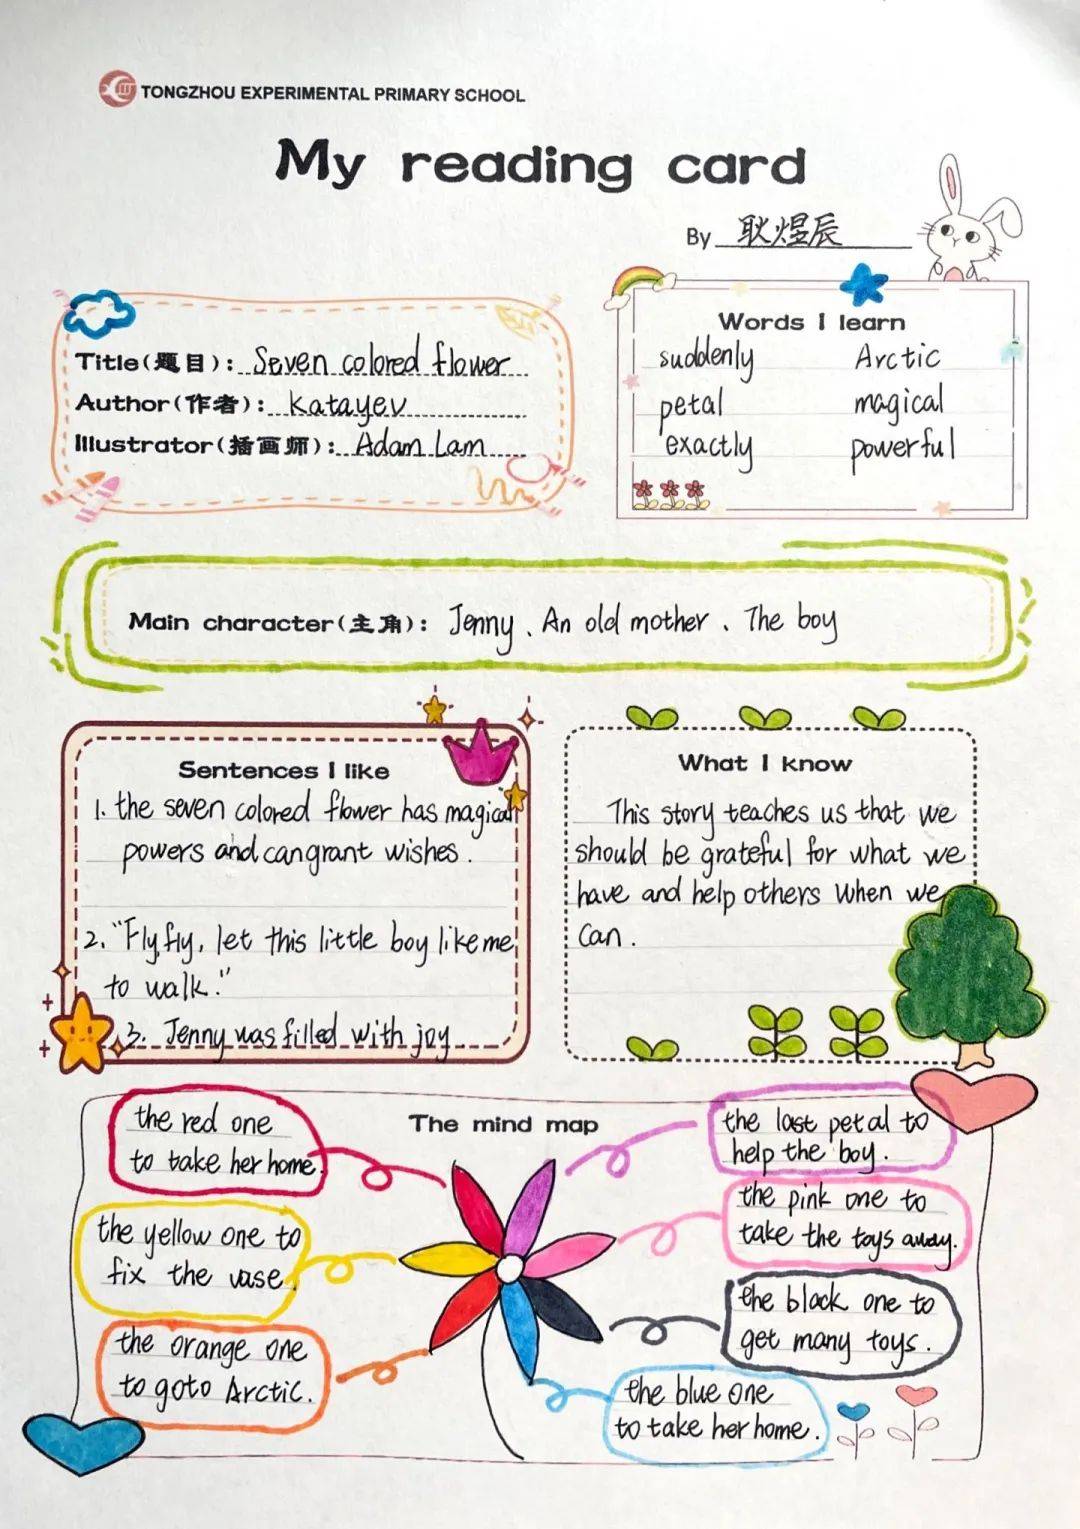 TONGZHOU EXPERIMENTAL PRIMARY SCHOOL
My reading card
By 耿煜辰
Title(题目): Seven colored flower
Author(作者): Katayev
Illustrator(插画师): Adam Lam
Words I learn
suddenly Arctic
petal magical
exactly powerful
Main character(主角): Jenny、An old mother、The boy
Sentences I like
1. the seven colored flower has magical
powers and can grant wishes.
2. "Fly, fly, let this little boy like me
to walk."
3. Jenny was filled with joy
What I know
This story teaches us that we
should be grateful for what we
have and help others when we
can.
The mind map
the red one
to take her home.
the yellow one to
fix the vase.
the orange one
to goto Arctic.
the last petal to
help the boy.
the pink one to
take the toys away.
the black one to
get many toys.
the blue one
to take her home.